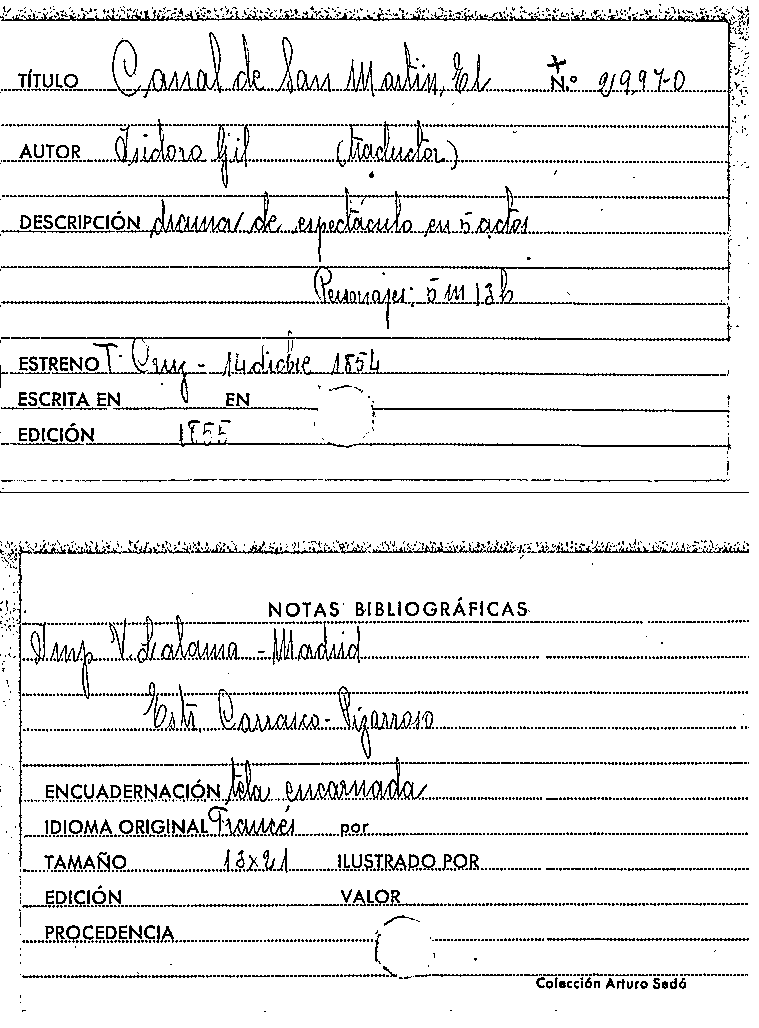 TÍTULO Canal de San Martin, El N.º 21997-0
AUTOR Isidoro Gil (traductor)
DESCRIPCIÓN drama de espectáculo en 5 actos
Personajes: 5 m 13 h
ESTRENO T. Cruz - 14 dicbre 1854
ESCRITA EN EN
EDICIÓN 1855
NOTAS BIBLIOGRÁFICAS
Imp V. Lalama - Madrid
Estr. Carrasco - Pizarroso
ENCUADERNACIÓN tela encarnada
IDIOMA ORIGINAL Francés por
TAMAÑO 13x21 ILUSTRADO POR
EDICIÓN VALOR
PROCEDENCIA
Colección Arturo Sedó